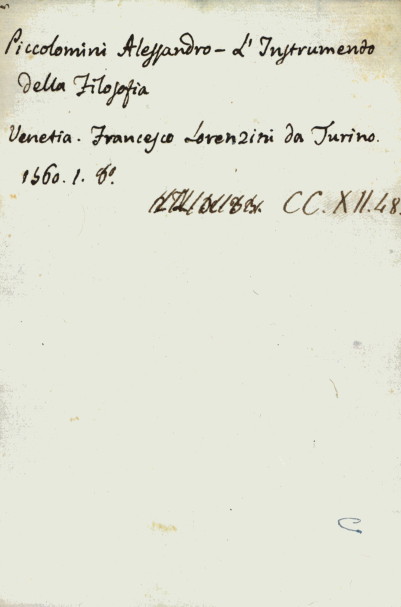 Piccolomini Alessandro - L' Instrumendo
della Filosofia
Venetia. Francesco Lorenzini da Turino.
1560. 1. 8º.
CC. XII. 48.